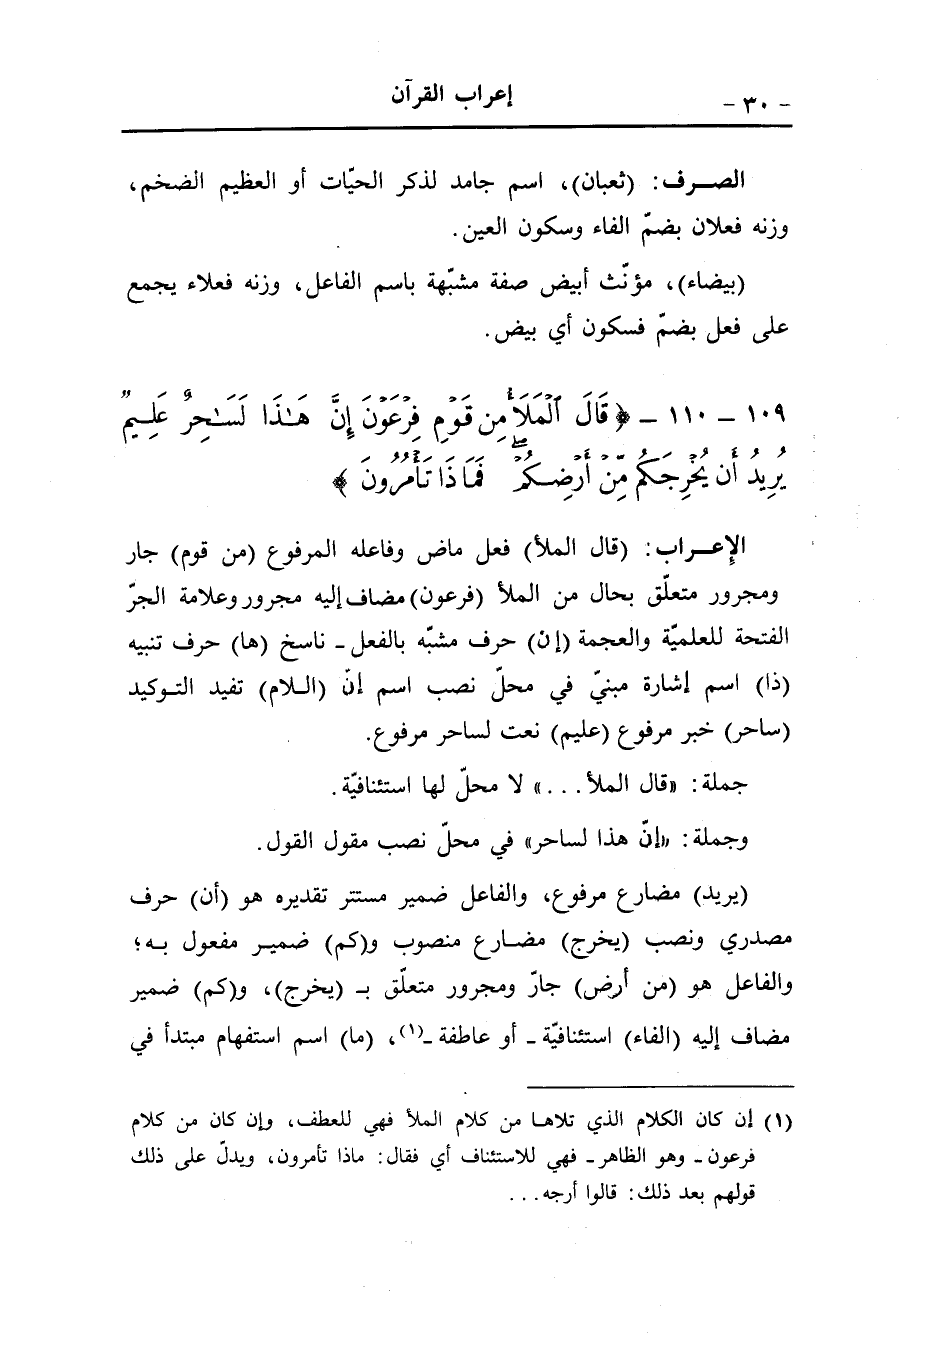 - ٣٠ -
إعراب القرآن
الصرف: (ثعبان)، اسم جامد لذكر الحيّات أو العظيم الضخم،
وزنه فعلان بضمّ الفاء وسكون العين.
(بيضاء)، مؤنّث أبيض صفة مشبّهة باسم الفاعل، وزنه فعلاء يجمع
على فعل بضمّ فسكون أي بيض.
١٠٩ - ١١٠ - ﴿ قَالَ ٱلْمَلَأُ مِن قَوْمِ فِرْعَوْنَ إِنَّ هَـٰذَا لَسَـٰحِرٌ عَلِيمٌ
يُرِيدُ أَن يُخْرِجَكُم مِّنْ أَرْضِكُمْ ۖ فَمَاذَا تَأْمُرُونَ ﴾
الإعراب: (قال الملأ) فعل ماض وفاعله المرفوع (من قوم) جار
ومجرور متعلّق بحال من الملأ (فرعون) مضاف إليه مجرور وعلامة الجرّ
الفتحة للعلميّة والعجمة (إن) حرف مشبّه بالفعل - ناسخ (ها) حرف تنبيه
(ذا) اسم إشارة مبنيّ في محلّ نصب اسم إنّ (اللام) تفيد التوكيد
(ساحر) خبر مرفوع (عليم) نعت لساحر مرفوع.
جملة: «قال الملأ...» لا محلّ لها استئنافيّة.
وجملة: «إنّ هذا لساحر» في محلّ نصب مقول القول.
(يريد) مضارع مرفوع، والفاعل ضمير مستتر تقديره هو (أن) حرف
مصدري ونصب (يخرج) مضارع منصوب و(كم) ضمير مفعول به؛
والفاعل هو (من أرض) جارّ ومجرور متعلّق بـ (يخرج)، و(كم) ضمير
مضاف إليه (الفاء) استئنافيّة - أو عاطفة -(١)، (ما) اسم استفهام مبتدأ في
(١) إن كان الكلام الذي تلاها من كلام الملأ فهي للعطف، وإن كان من كلام
فرعون - وهو الظاهر - فهي للاستئناف أي فقال: ماذا تأمرون، ويدلّ على ذلك
قولهم بعد ذلك: قالوا أرجه...